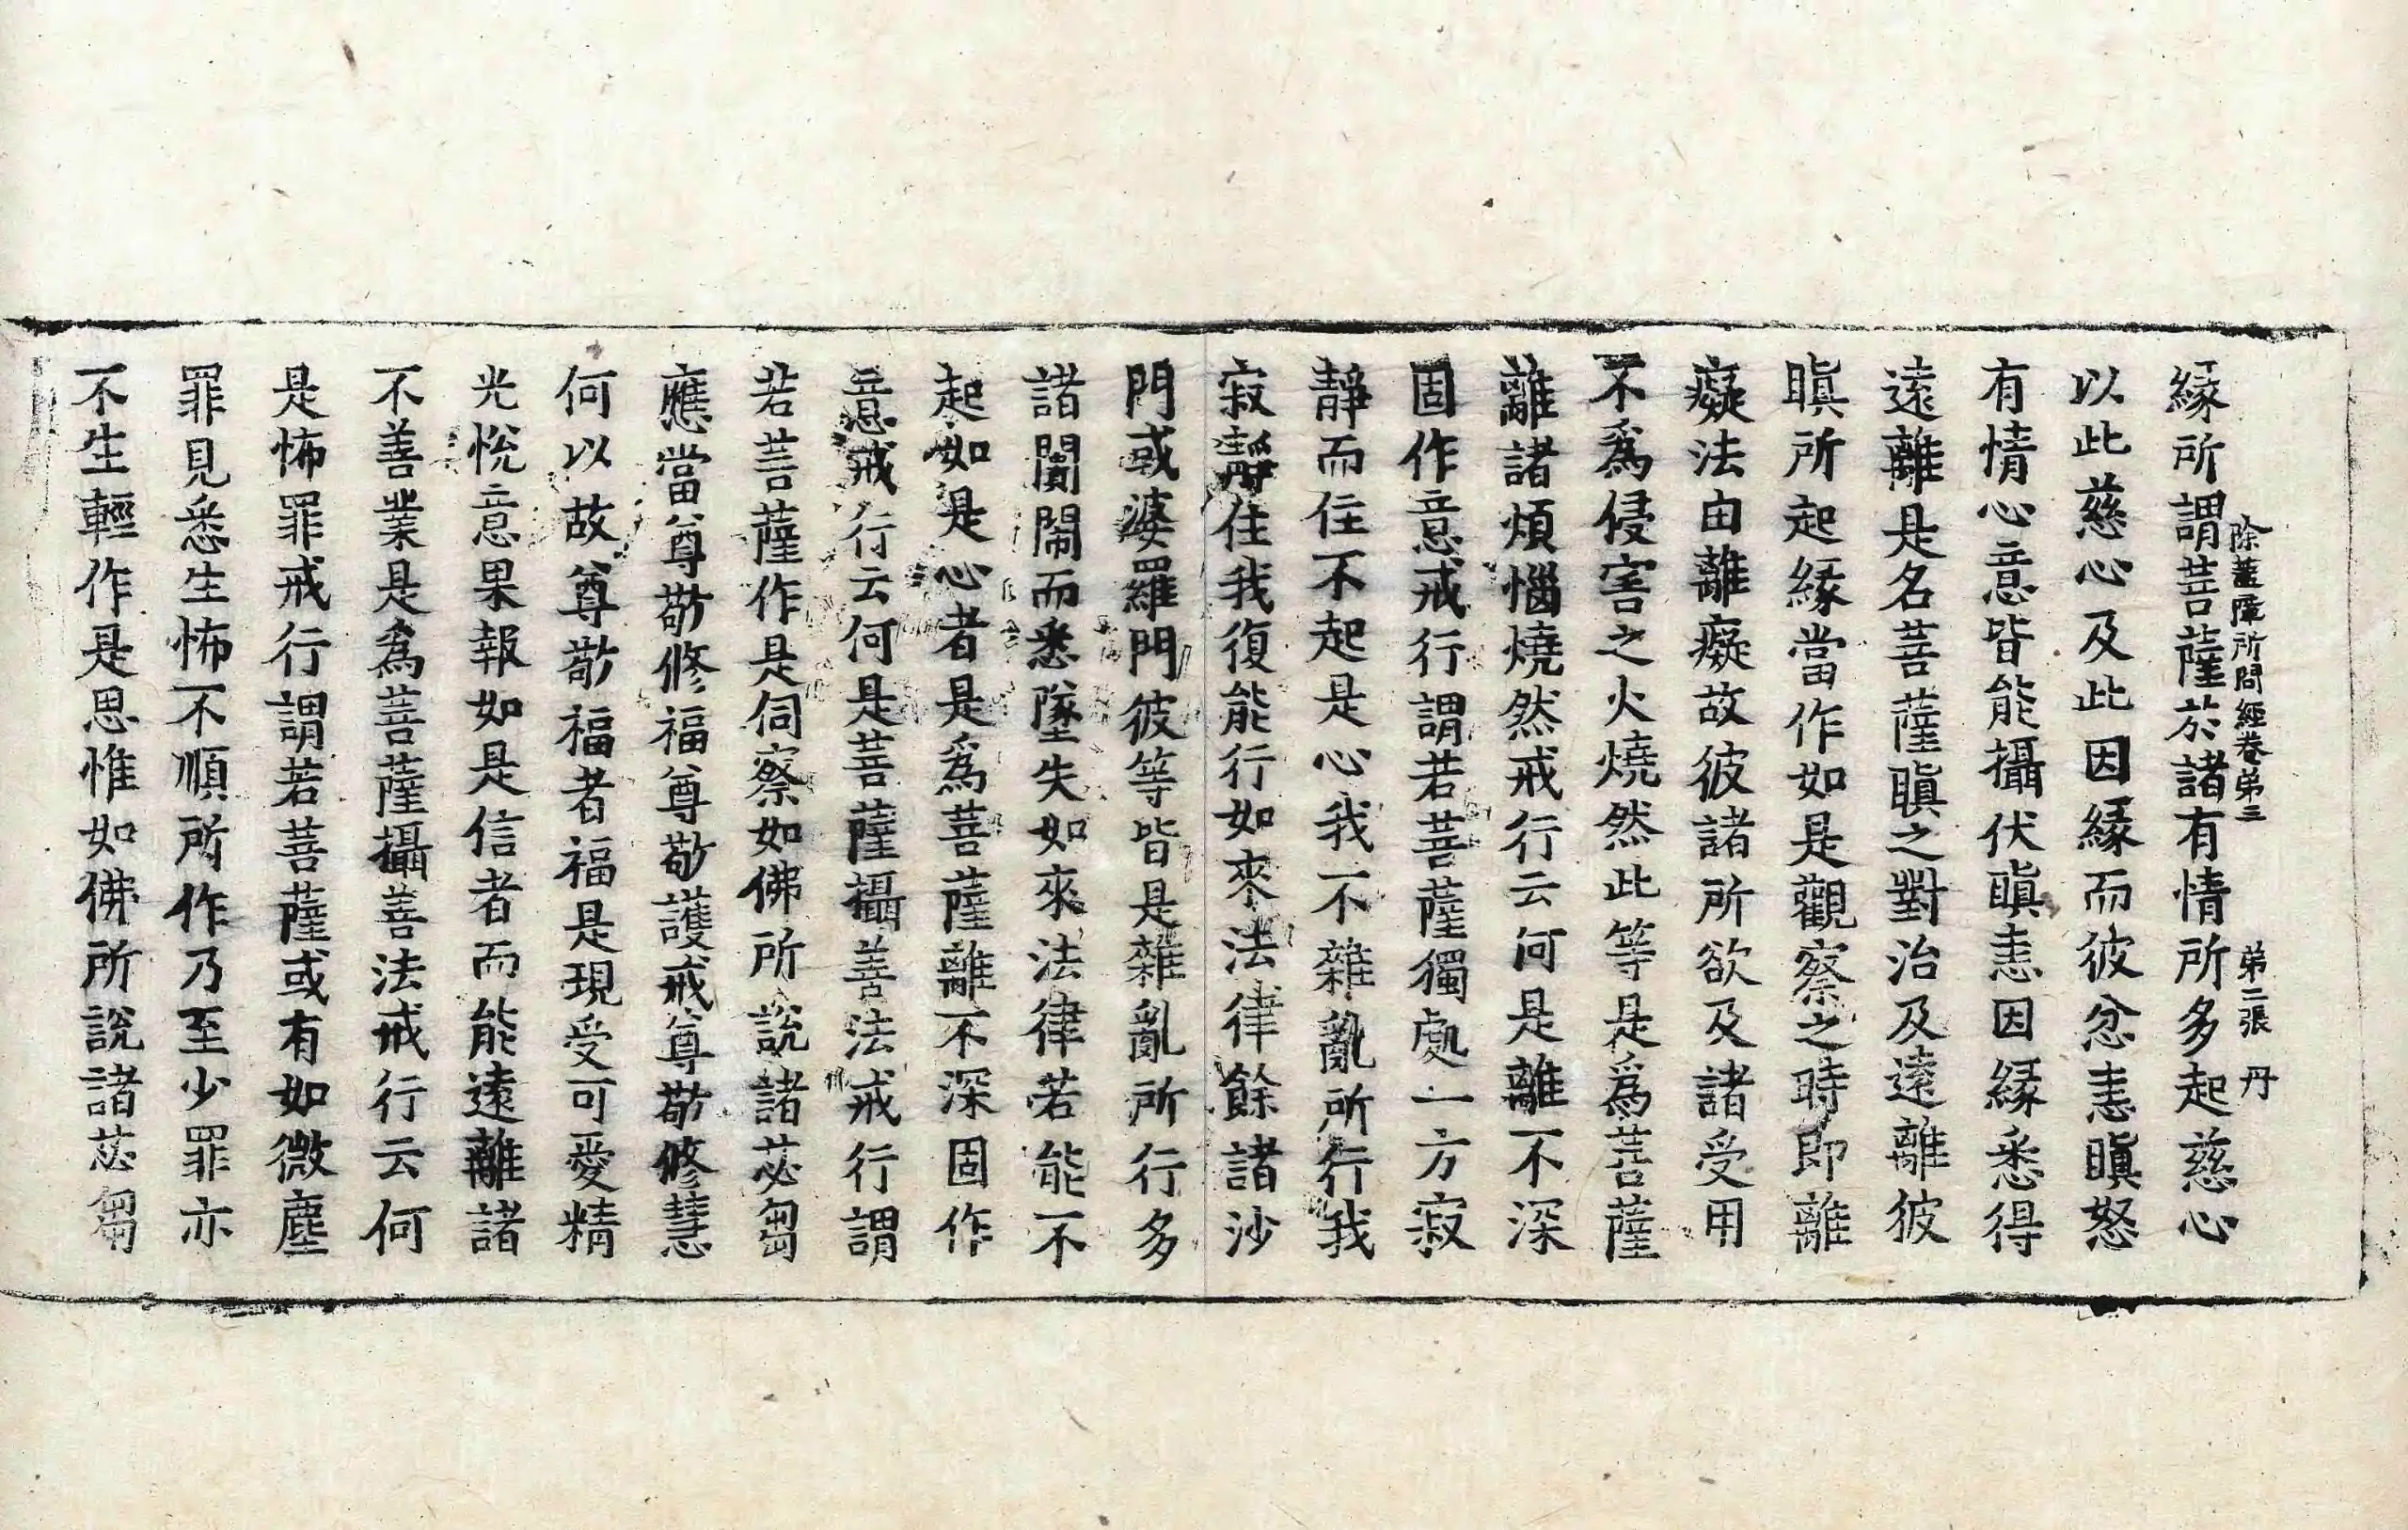 除蓋障所問經卷第三 第二張 丹
緣所謂菩薩於諸有情所多起慈心
以此慈心及此因緣而彼忿恚瞋怒
有情心意皆能攝伏瞋恚因緣悉得
遠離是名菩薩瞋之對治及遠離彼
瞋所起緣當作如是觀察之時即離
癡法由離癡故彼諸所欲及諸受用
不爲侵害之火燒然此等是爲菩薩
離諸煩惱燒然戒行云何是離不深
固作意戒行謂若菩薩獨處一方寂
靜而住不起是心我不雜亂所行我
寂靜住我復能行如來法律餘諸沙
門或婆羅門彼等皆是雜亂所行多
諸闠閙而悉墜失如來法律若能不
起如是心者是爲菩薩離不深固作
意戒行云何是菩薩攝善法戒行謂
若菩薩作是伺察如佛所說諸苾芻
應當尊敬修福尊敬護戒尊敬修慧
何以故尊敬福者福是現受可愛精
光悅意果報如是信者而能遠離諸
不善業是爲菩薩攝善法戒行云何
是怖罪戒行謂若菩薩或有如微塵
罪見悉生怖不順所作乃至少罪亦
不生輕作是思惟如佛所說諸苾芻